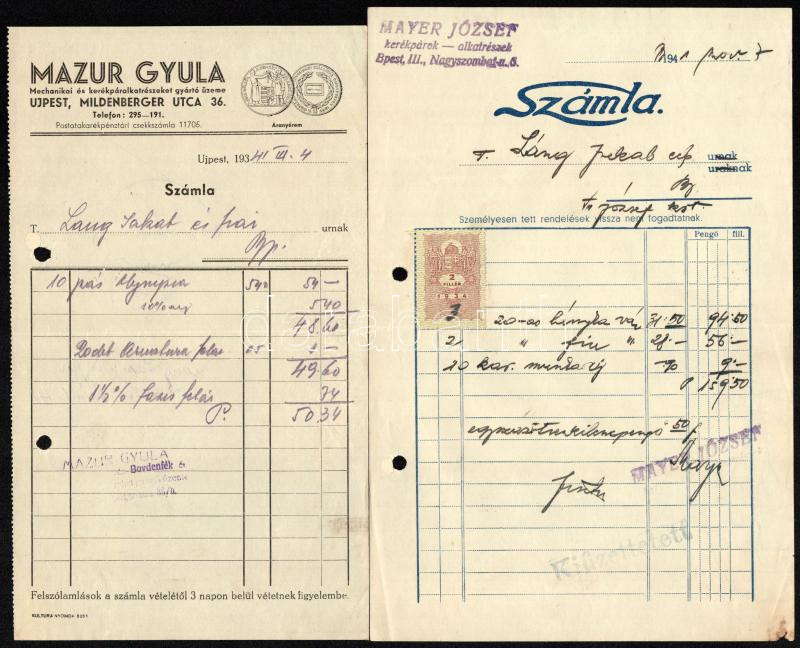 MAZUR GYULA
Mechanikai és kerékpáralkatrészeket gyártó üzeme
UJPEST, MILDENBERGER UTCA 36.
Telefon: 295—191.
Postatakarékpénztári csekkszámla 11705.
Aranyérem
Ujpest, 1934 41 III. 4
Számla
T. Lang Jakab és fiai urnak
Bp.
10 pár Olympia 540 54 —
10% eng 540
48.60
20 det
49.60
1½% fazis felár 74
P. 50.34
MAZUR GYULA
Bovdenfék
Felszólamlások a számla vételétől 3 napon belül vétetnek figyelembe.
KULTURA NYOMDA
MAYER JÓZSEF
kerékpárok — alkatrészek
Bpest, III., Nagyszombat-u. 6.
1941 nov. 7
Számla.
T. Láng Jakab urnak
uraknak
Bp.
József krt.
Személyesen tett rendelések vissza nem fogadtatnak.
Pengő fill.
2
FILLÉR
1934
3 20-as váz 31.50 94.50
2 " " 28.- 56.-
20 9.-
P 159.50
50 f
MAYER JÓZSEF
Mayer
Kifizettetett
darabanth